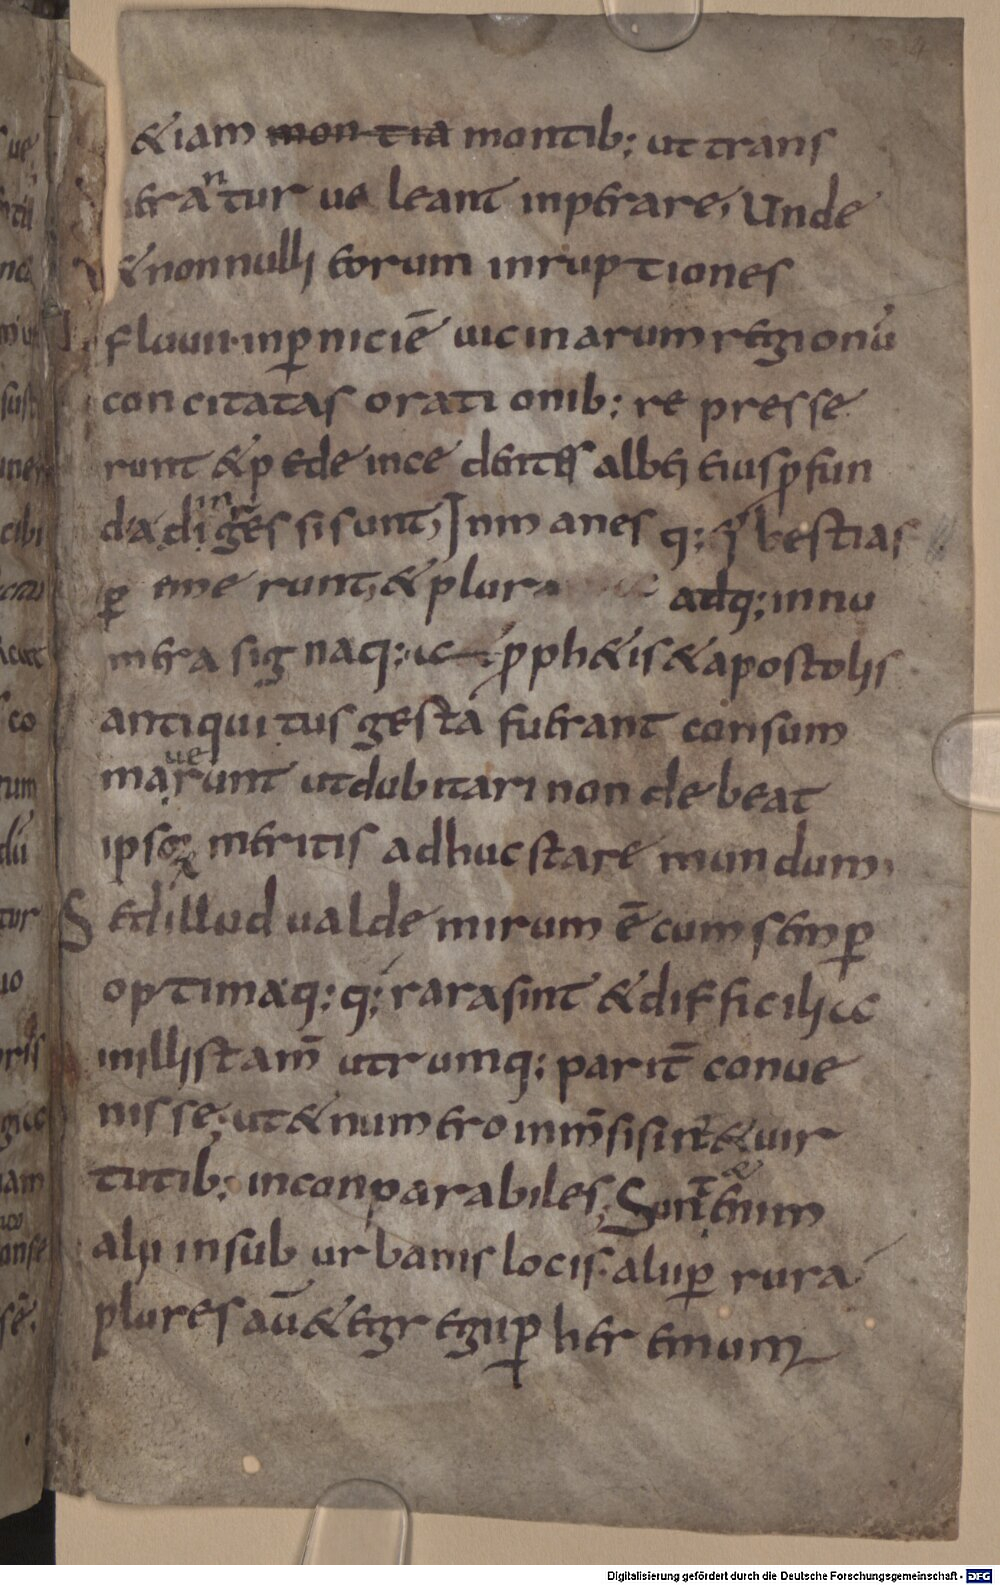 &iam mon tia montib; ut trans
feran tur ue leant inperare, Unde
& non nulli eorum inruptiones
fluuii inp̱niciē uicinarum regionū
con citatas orati onib; re presse
runt & pede ince dentes albei eius ꝓfun
da di in gres si sunt, Inm anes q; bestias
ꝑ eme runt, & plura adq; innu
mera sig naq; ꝓph&is & apostolis
antiqui tus gesta fuerant consum
maue runt ut dubitari non debeat
ipsoꝝ meritis adhuc stare mundum
Sed illud ualde mirum ē cum semꝑ
optimaq; q; rara sint & difficilia
in illis tam̄ utrumq; parit̄ conue
nisse, ut & numero inm̄si sint & uir
tutib; inconparabiles, Sunt & enim
alii in sub urbanis locis. alii ꝑ rura
plures aū & egr egii ꝑ her emum
Digitalisierung gefördert durch die Deutsche Forschungsgemeinschaft - DFG